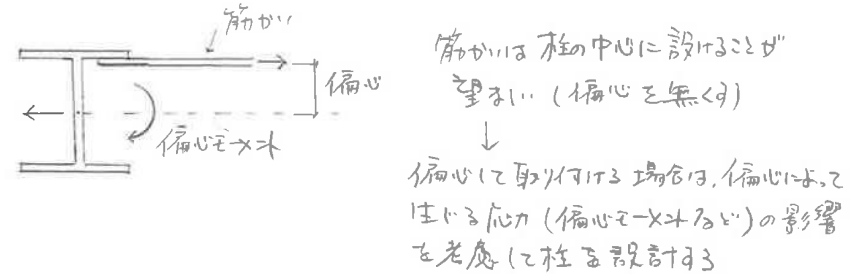 筋かい
偏心
偏心モーメント
筋かいは 柱の中心に設けることが
望ましい (偏心を無くす)
↓
偏心して取り付ける場合は、偏心によって
生じる応力 (偏心モーメントなど) の影響
を考慮して柱を設計する